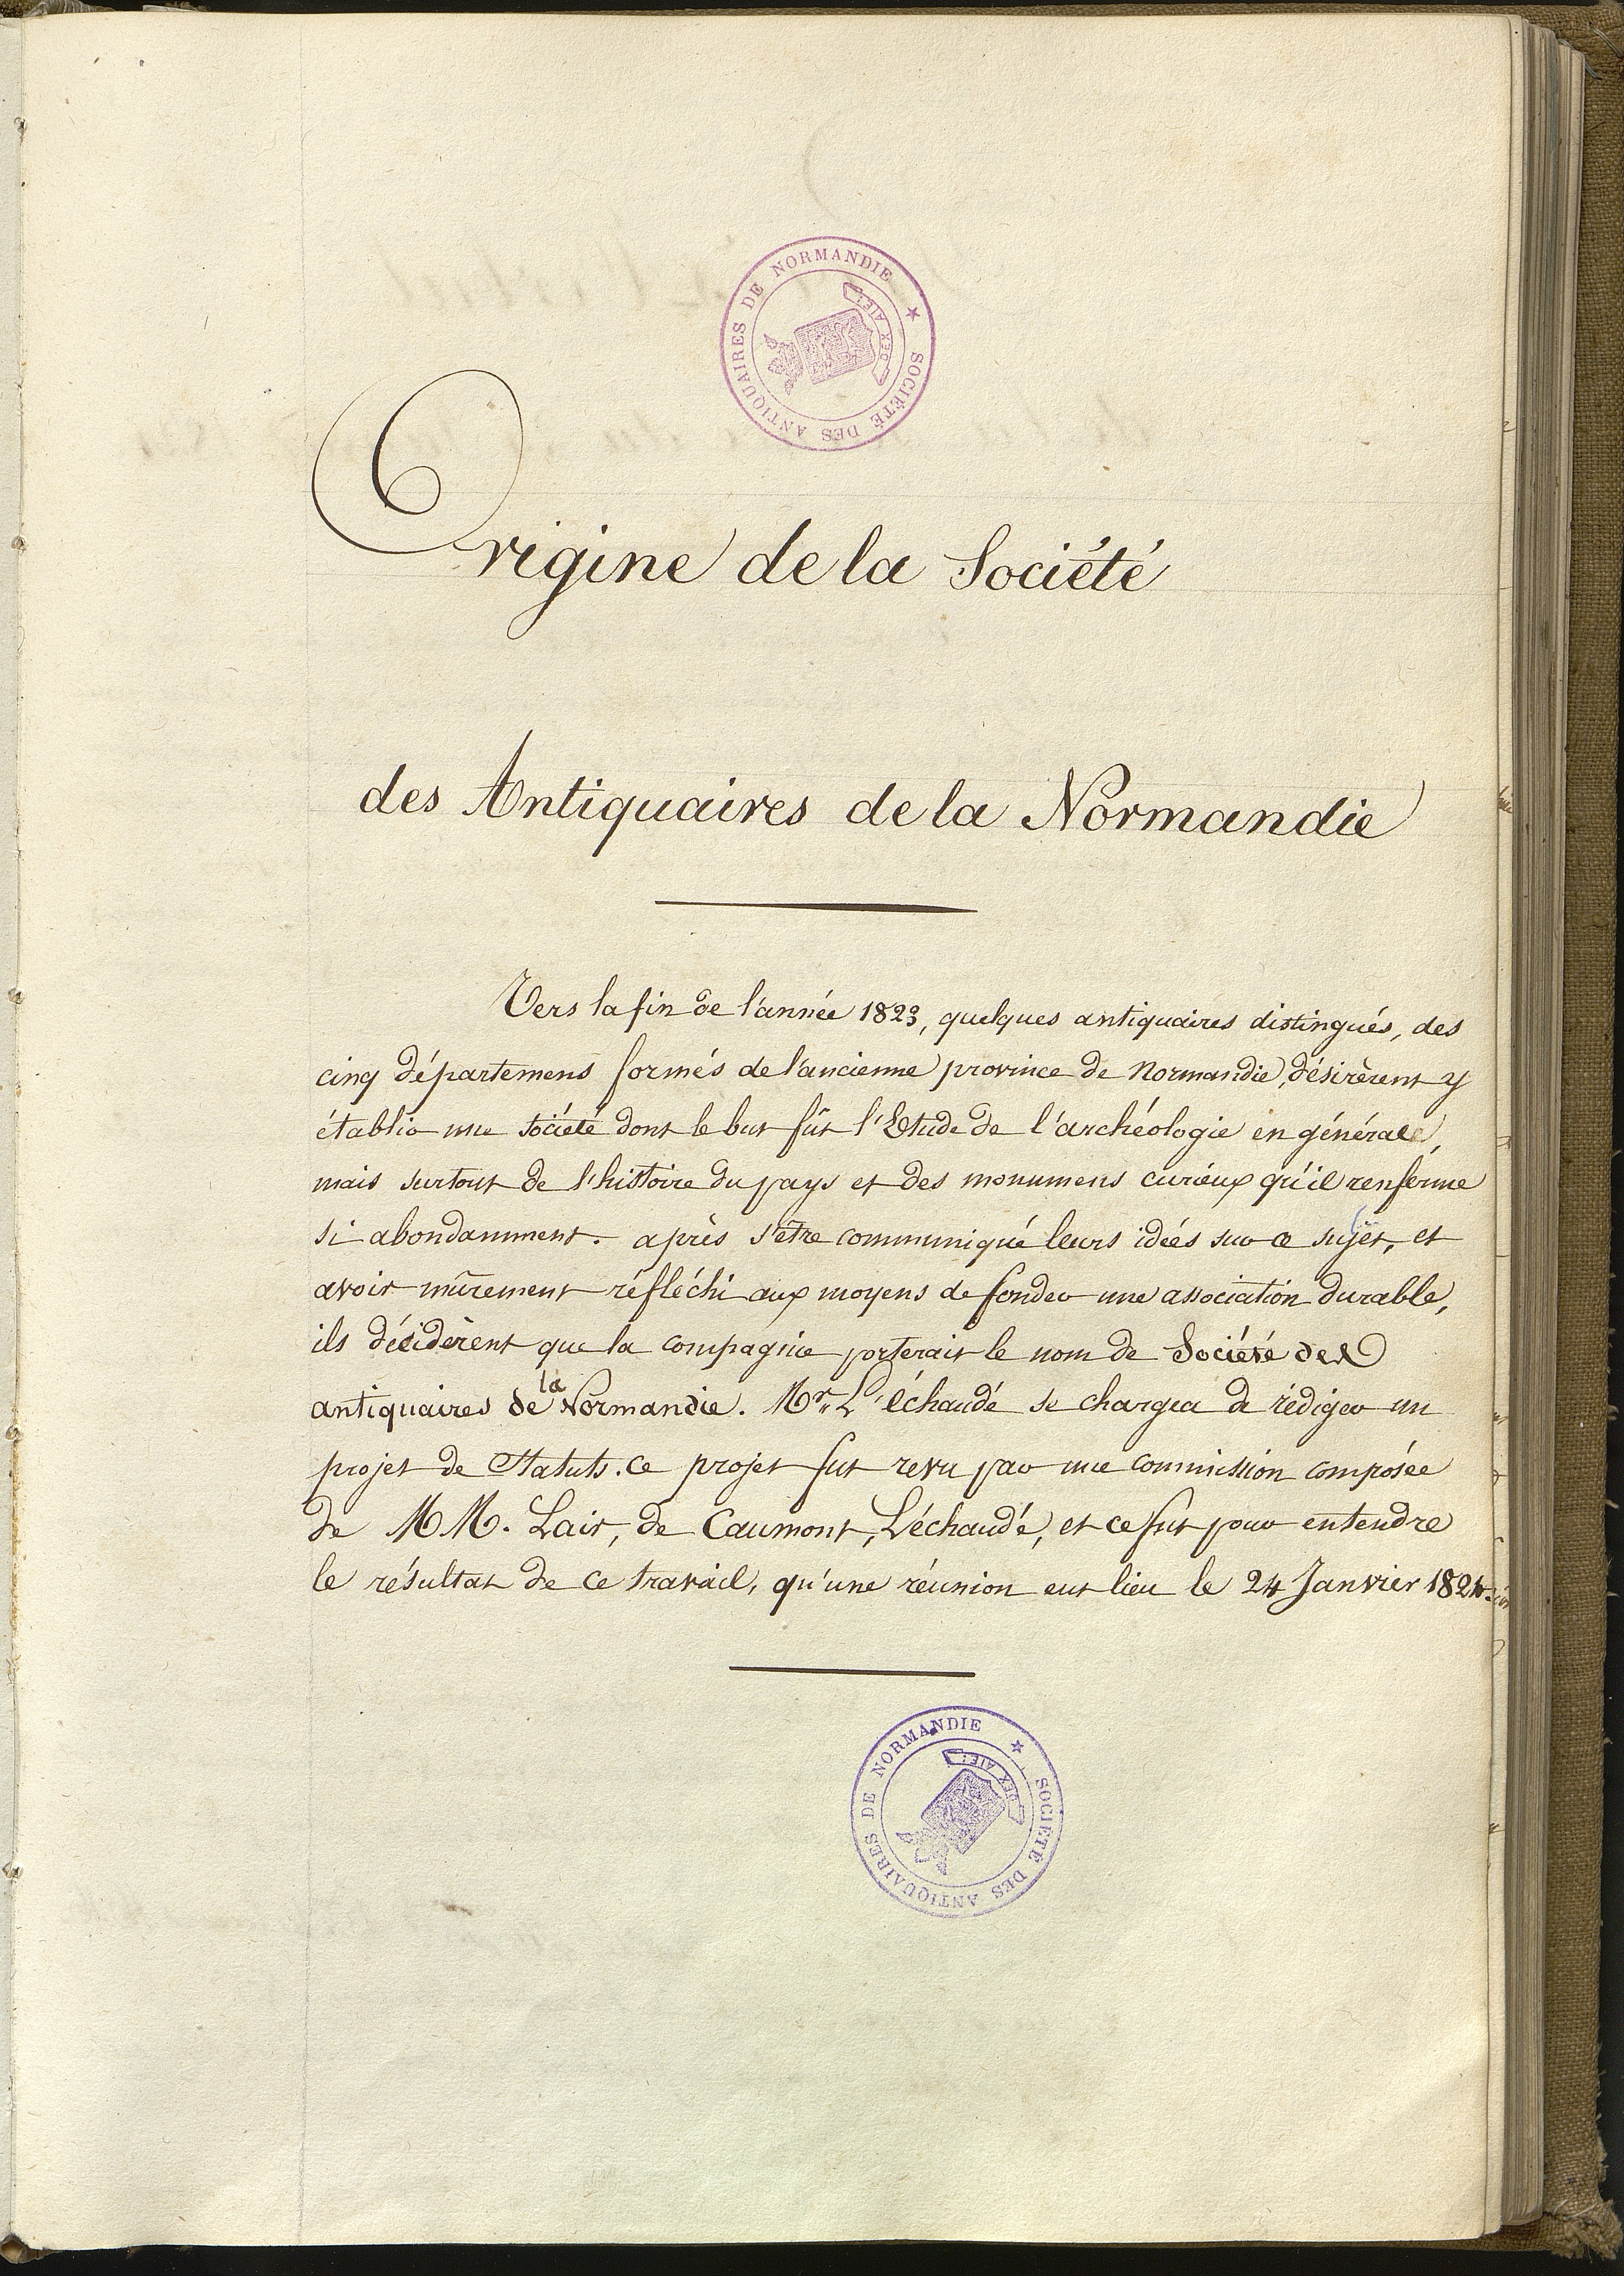 SOCIÉTÉ DES ANTIQUAIRES DE NORMANDIE ★
DEX AIE!
Origine de la Société
des Antiquaires de la Normandie
Vers la fin de l'année 1823, quelques antiquaires distingués, des
cinq départemens formés de l'ancienne province de Normandie, désirèrent y
établir une société dont le but fût l'Etude de l'archéologie en générale,
mais surtout de l'histoire du pays et des monumens curieux qu'il renferme
si abondamment. après s'être communiqué leurs idées sur ce sujet, et
avoir mûrement réfléchi aux moyens de fonder une association durable,
ils décidèrent que la compagnie porterait le nom de Société des
antiquaires de la Normandie. Mr. L'échaudé se chargea de rédiger un
projet de Statuts. Ce projet fut revu par une commission composée
de MM. Lair, de Caumont, L'échaudé, et ce fut pour entendre
le résultat de ce travail, qu'une réunion eut lieu le 24 Janvier 1824.
SOCIÉTÉ DES ANTIQUAIRES DE NORMANDIE ★
DEX AIE!